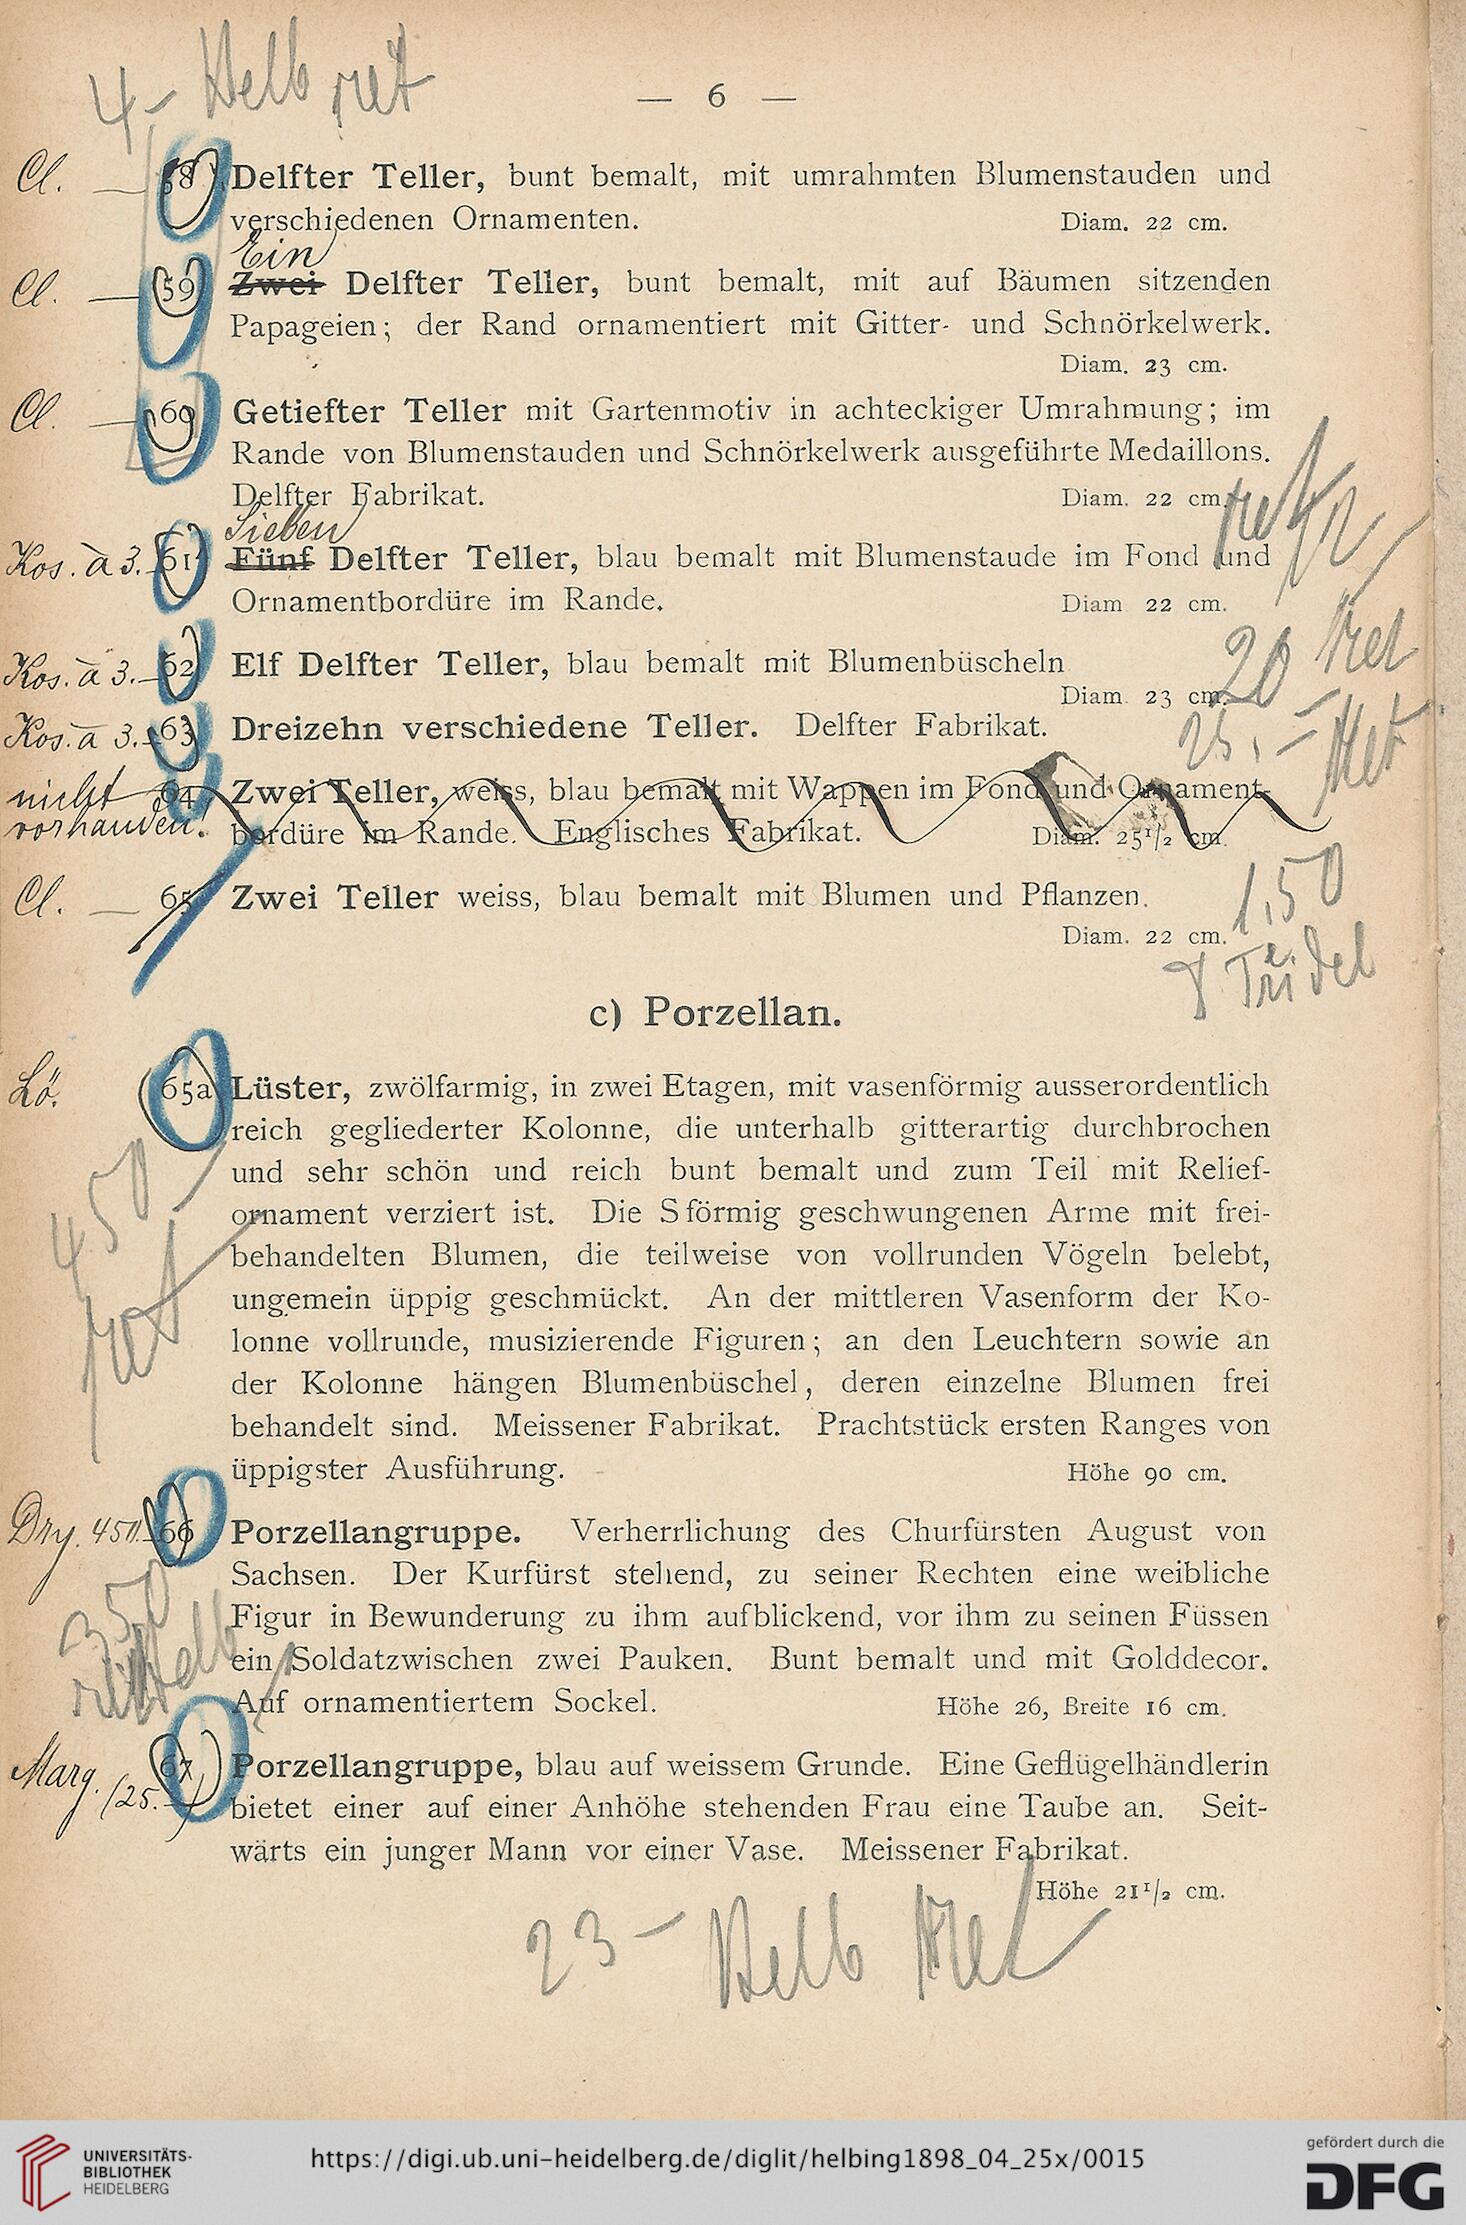 4,– Helb ret
— 6 —
Cl. — 58 Delfter Teller, bunt bemalt, mit umrahmten Blumenstauden und
verschiedenen Ornamenten. Diam. 22 cm.
Ein
Cl. — 59 Zwei Delfter Teller, bunt bemalt, mit auf Bäumen sitzenden
Papageien; der Rand ornamentiert mit Gitter- und Schnörkelwerk.
Diam. 23 cm.
Cl. — 60 Getiefter Teller mit Gartenmotiv in achteckiger Umrahmung; im
Rande von Blumenstauden und Schnörkelwerk ausgeführte Medaillons.
Delfter Fabrikat. Diam. 22 cm.
Sieben
Kos. à 3. 61 Fünf Delfter Teller, blau bemalt mit Blumenstaude im Fond und
Ornamentbordüre im Rande. Diam 22 cm.
Kos. à 3. — 62 Elf Delfter Teller, blau bemalt mit Blumenbüscheln
Diam. 23 cm. 20 ret
Kos. à 3. 63 Dreizehn verschiedene Teller. Delfter Fabrikat. 25,– ret
nicht 64 Zwei Teller, weiss, blau bemalt mit Wappen im Fond und Ornament-
vorhanden! bordüre im Rande. Englisches Fabrikat. Diam. 25¹/₂ cm.
Cl. — 65 Zwei Teller weiss, blau bemalt mit Blumen und Pflanzen.
Diam. 22 cm. 1,50
c) Porzellan.
Lö. 65a Lüster, zwölfarmig, in zwei Etagen, mit vasenförmig ausserordentlich
reich gegliederter Kolonne, die unterhalb gitterartig durchbrochen
und sehr schön und reich bunt bemalt und zum Teil mit Relief-
450 ornament verziert ist. Die S förmig geschwungenen Arme mit frei-
behandelten Blumen, die teilweise von vollrunden Vögeln belebt,
ungemein üppig geschmückt. An der mittleren Vasenform der Ko-
ret lonne vollrunde, musizierende Figuren; an den Leuchtern sowie an
der Kolonne hängen Blumenbüschel, deren einzelne Blumen frei
behandelt sind. Meissener Fabrikat. Prachtstück ersten Ranges von
üppigster Ausführung. Höhe 90 cm.
66 Porzellangruppe. Verherrlichung des Churfürsten August von
Sachsen. Der Kurfürst stehend, zu seiner Rechten eine weibliche
350 Figur in Bewunderung zu ihm aufblickend, vor ihm zu seinen Füssen
ret Helb ein Soldatzwischen zwei Pauken. Bunt bemalt und mit Golddecor.
Auf ornamentiertem Sockel. Höhe 26, Breite 16 cm.
Marg. 67 Porzellangruppe, blau auf weissem Grunde. Eine Geflügelhändlerin
25.– bietet einer auf einer Anhöhe stehenden Frau eine Taube an. Seit-
wärts ein junger Mann vor einer Vase. Meissener Fabrikat.
Höhe 21¹/₂ cm.
23 – Helb ret
UNIVERSITÄTS-
BIBLIOTHEK
HEIDELBERG
https://digi.ub.uni-heidelberg.de/diglit/helbing1898_04_25x/0015
gefördert durch die
DFG